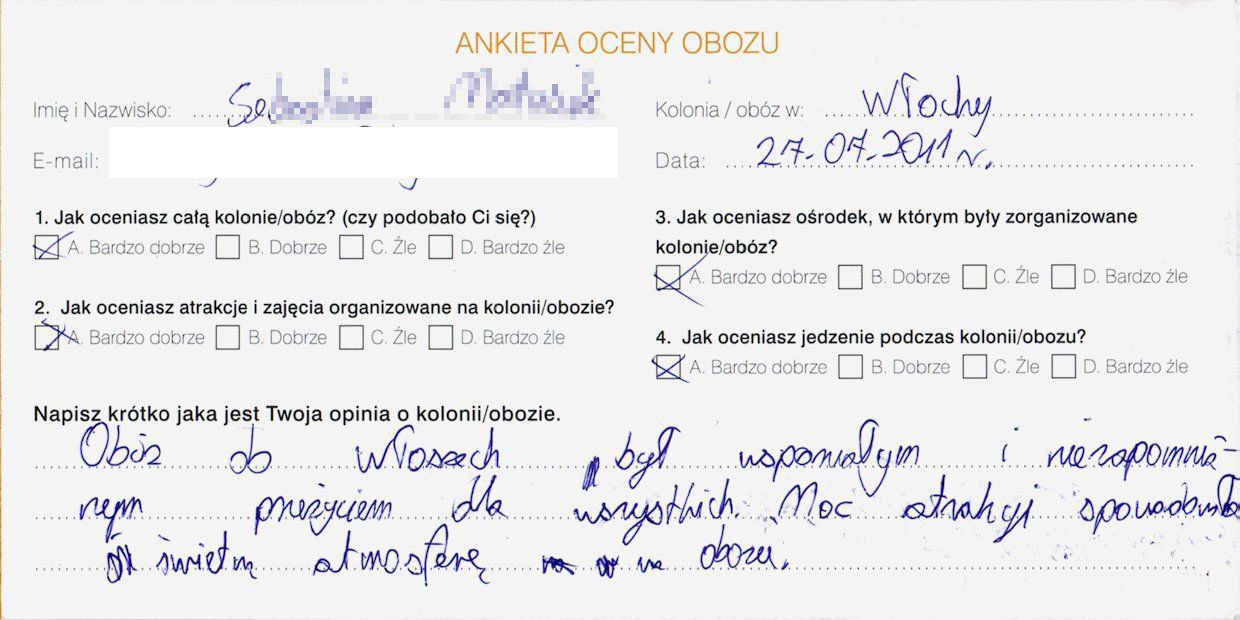 ANKIETA OCENY OBOZU
Imię i Nazwisko:
Kolonia / obóz w: Włochy
E-mail:
Data: 27.07.2011 r.
1. Jak oceniasz całą kolonie/obóz? (czy podobało Ci się?)
A. Bardzo dobrze B. Dobrze C. Źle D. Bardzo źle
2. Jak oceniasz atrakcje i zajęcia organizowane na kolonii/obozie?
A. Bardzo dobrze B. Dobrze C. Źle D. Bardzo źle
3. Jak oceniasz ośrodek, w którym były zorganizowane
kolonie/obóz?
A. Bardzo dobrze B. Dobrze C. Źle D. Bardzo źle
4. Jak oceniasz jedzenie podczas kolonii/obozu?
A. Bardzo dobrze B. Dobrze C. Źle D. Bardzo źle
Napisz krótko jaka jest Twoja opinia o kolonii/obozie.
Obóz do Włoszech był wspaniałym i niezapomnia-
nym przeżyciem dla wszystkich. Moc atrakcji spowodowała
świetną atmosferę na obozu.